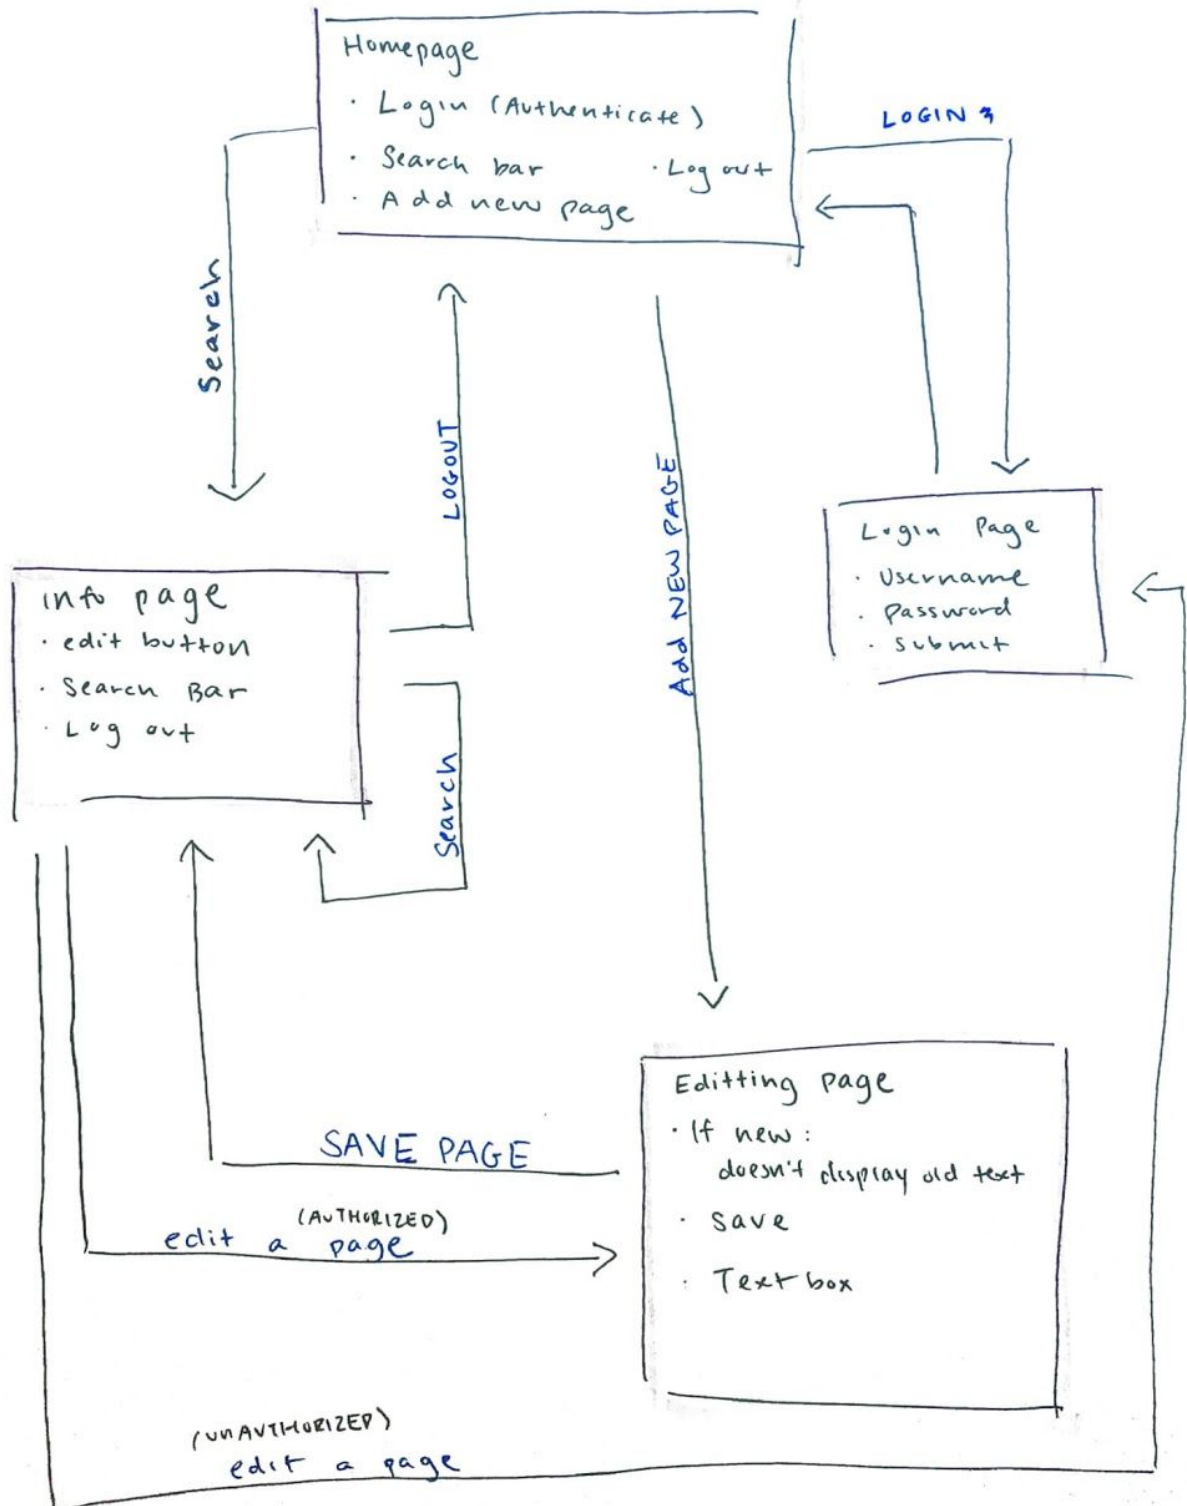 Homepage
· Login (Authenticate)
· Search bar
· Log out
· Add new page
LOGIN
Search
LOGOUT
Add NEW PAGE
Login Page
· Username
· Password
· Submit
info page
· edit button
· Search Bar
· Log out
Search
Editting page
· If new :
doesn't display old text
· Save
· Text box
SAVE PAGE
(AUTHORIZED)
edit a page
(UNAUTHORIZED)
edit a page